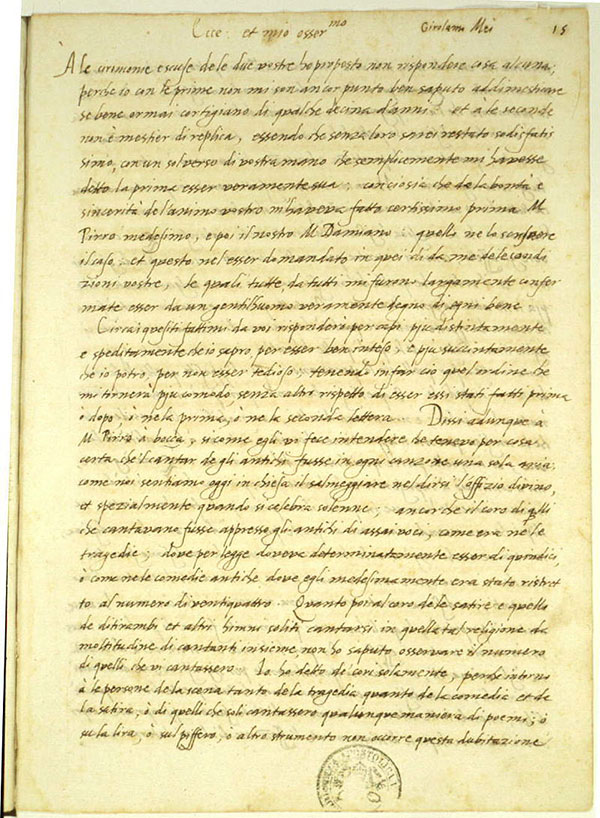 Ecce. et mio osser.mo
Girolamo Mei
15
A le cirimonie e scuse de le due vostre ho proposto non rispondere cosa alcuna;
perche io con le prime non mi son ancor punto ben saputo addimesticare
se bene ormai cortigiano di qualche decina d'anni: et à le seconde
non è mestier di replica, essendo che senza loro sarei restato sodisfatis
simo, con un sol verso di vostra mano che semplicemente mi havesse
detto la prima esser veramente sua; conciosia che de la bontà e
sincerità de l'animo vostro m'haveva fatto certissimo prima M.
Pirro medesimo, e poi il nostro M. Damiano: quelli ne lo
il caso; et questo nel esser domandato in quei dì da me de le condi
zioni vostre, le quali tutte, da tutti mi furono largamente confer
mate esser da un gentilhuomo veramente degno di ogni bene
Circa i quesiti fattimi da voi risponderò per capi più distintamente
e speditamente che io saprò, per esser ben inteso; e più succintamente
che io potrò, per non esser tedioso: tenendo in far ciò quel ordine che
mi tornerà più comodo senza altri rispetto di esser essi stati fatti prima
ò dopo ò ne la prima, ò ne la seconda lettera. Dissi adunque à
M. Pirro à bocca, si come egli vi fece intendere che tenevo per cosa
certa che'l cantar de gli antichi fusse in ogni canzone una sola aria:
come noi sentiamo oggi in chiesa il salmeggiare nel dirsi l'uffizio divino,
et spezialmente quando si celebra solenne; ancor che il coro di quelli
che cantavano fusse appresso gli antichi di assai voci, come era ne le
tragedie; dove per legge doveva determinatamente esser di quindici,
ò come ne le comedie antiche dove egli medesimamente era stato ristret
to al numero di ventiquattro. Quanto poi al coro de le satire e quello
de ditirambi et altri himni soliti cantarsi in quella tal religione da
moltitudine di cantanti insieme, non ho saputo osservare il numero
di quelli che vi cantassero. Io ho detto de' cori solamente, perche intorno
à le persone de la scena tanto de la tragedia quanto de la comedia et de
la satira, ò di quelli che soli cantassero qualunque maniera di poemi; ò
su la lira, ò sul piffero, ò altro strumento non ocorre questa dubitazione